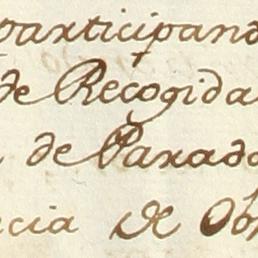 participand
de Recogida
de Parado
ecia de Ob